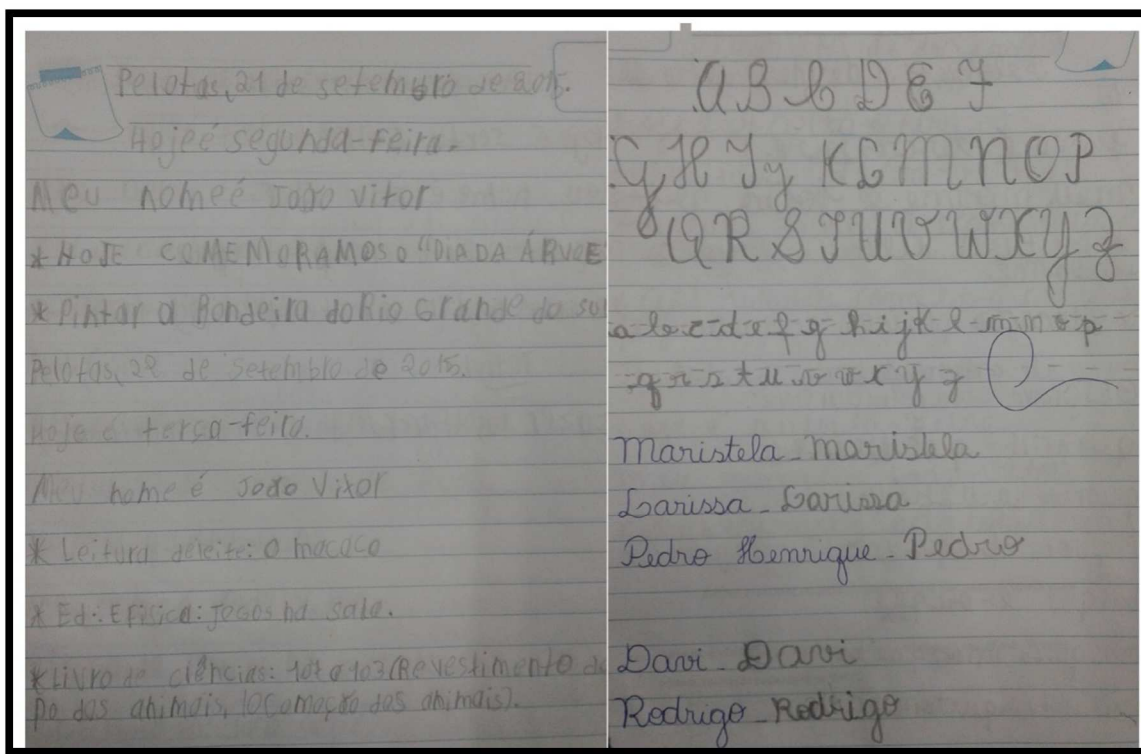 Pelotas, 21 de setembro de 2015.
Hojeé segunda-feira.
Meu nomeé João Vitor
* HOJE COMEMORAMOS O "DIA DA ÁRVOE
* Pintar a Bandeira do Rio Grande do sul
Pelotas, 22 de setembro de 2015.
Hoje é terça-feira.
Meu nome é João Vitor
* Leitura deleite: O macaco
* Ed: Efísica: jogos na sala.
* Livro de ciências: 102 a 103 (Revestimento do
po dos animais, locomoção dos animais).
A B C D E F
G H I J y K L M N O P
Q R S T U V W X Y Z
a b c d e f g h i j k l m n o p
q r s t u v w x y z
Maristela - Maristela
Larissa - Larissa
Pedro Henrique - Pedro
Davi - Davi
Rodrigo - Rodrigo